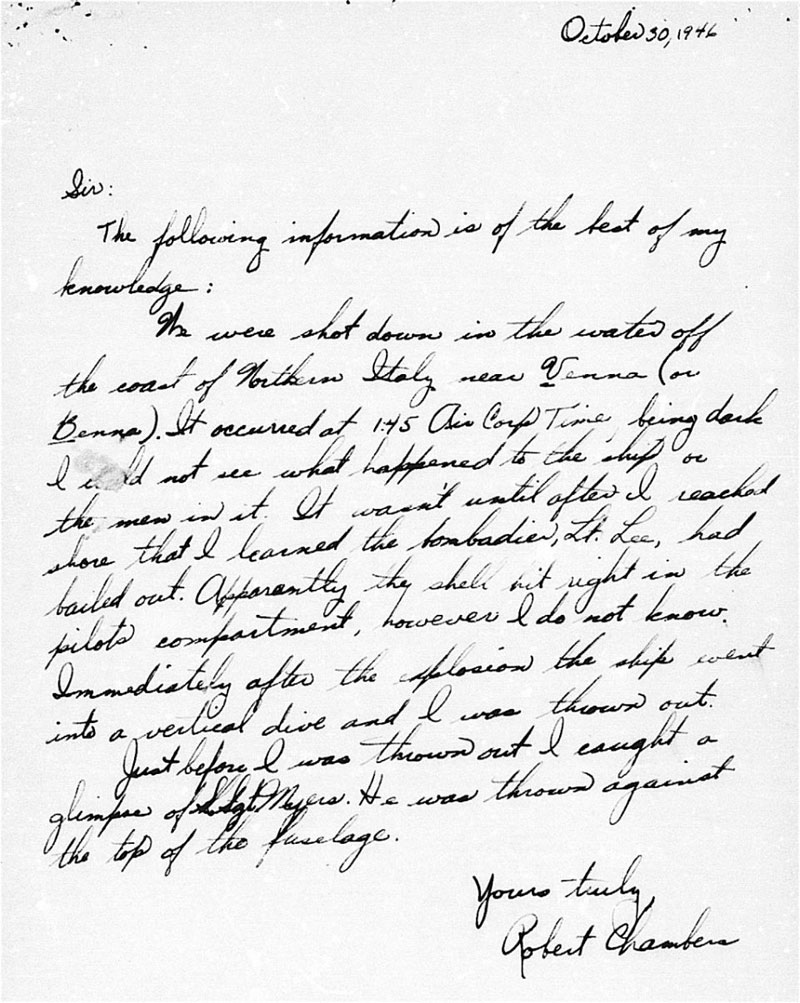 October 30, 1946
Sir:
The following information is of the best of my
knowledge:
We were shot down in the water off
the coast of Northern Italy near Venna (or
Benna). It occurred at 145 Air Corp Time, being dark
I could not see what happened to the ship or
the men in it. It wasn't until after I reached
shore that I learned the bombadier, Lt. Lee, had
bailed out. Apparantly the shell hit right in the
pilots compartment, however I do not know.
Immediately after the explosion the ship went
into a vertical dive and I was thrown out.
Just before I was thrown out I caught a
glimpse of S/Sgt Myers. He was thrown against
the top of the fuselage.
Yours truly,
Robert Chambers